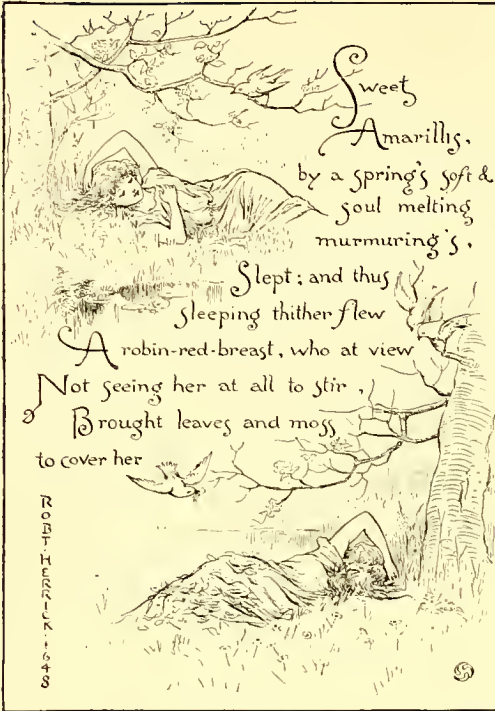 Sweet
Amarillis,
by a spring's soft &
soul melting
murmuring's,
Slept; and thus
sleeping thither flew
A robin-red-breast, who at view
Not seeing her at all to stir,
Brought leaves and moss
to cover her
ROBT·HERRICK·1648